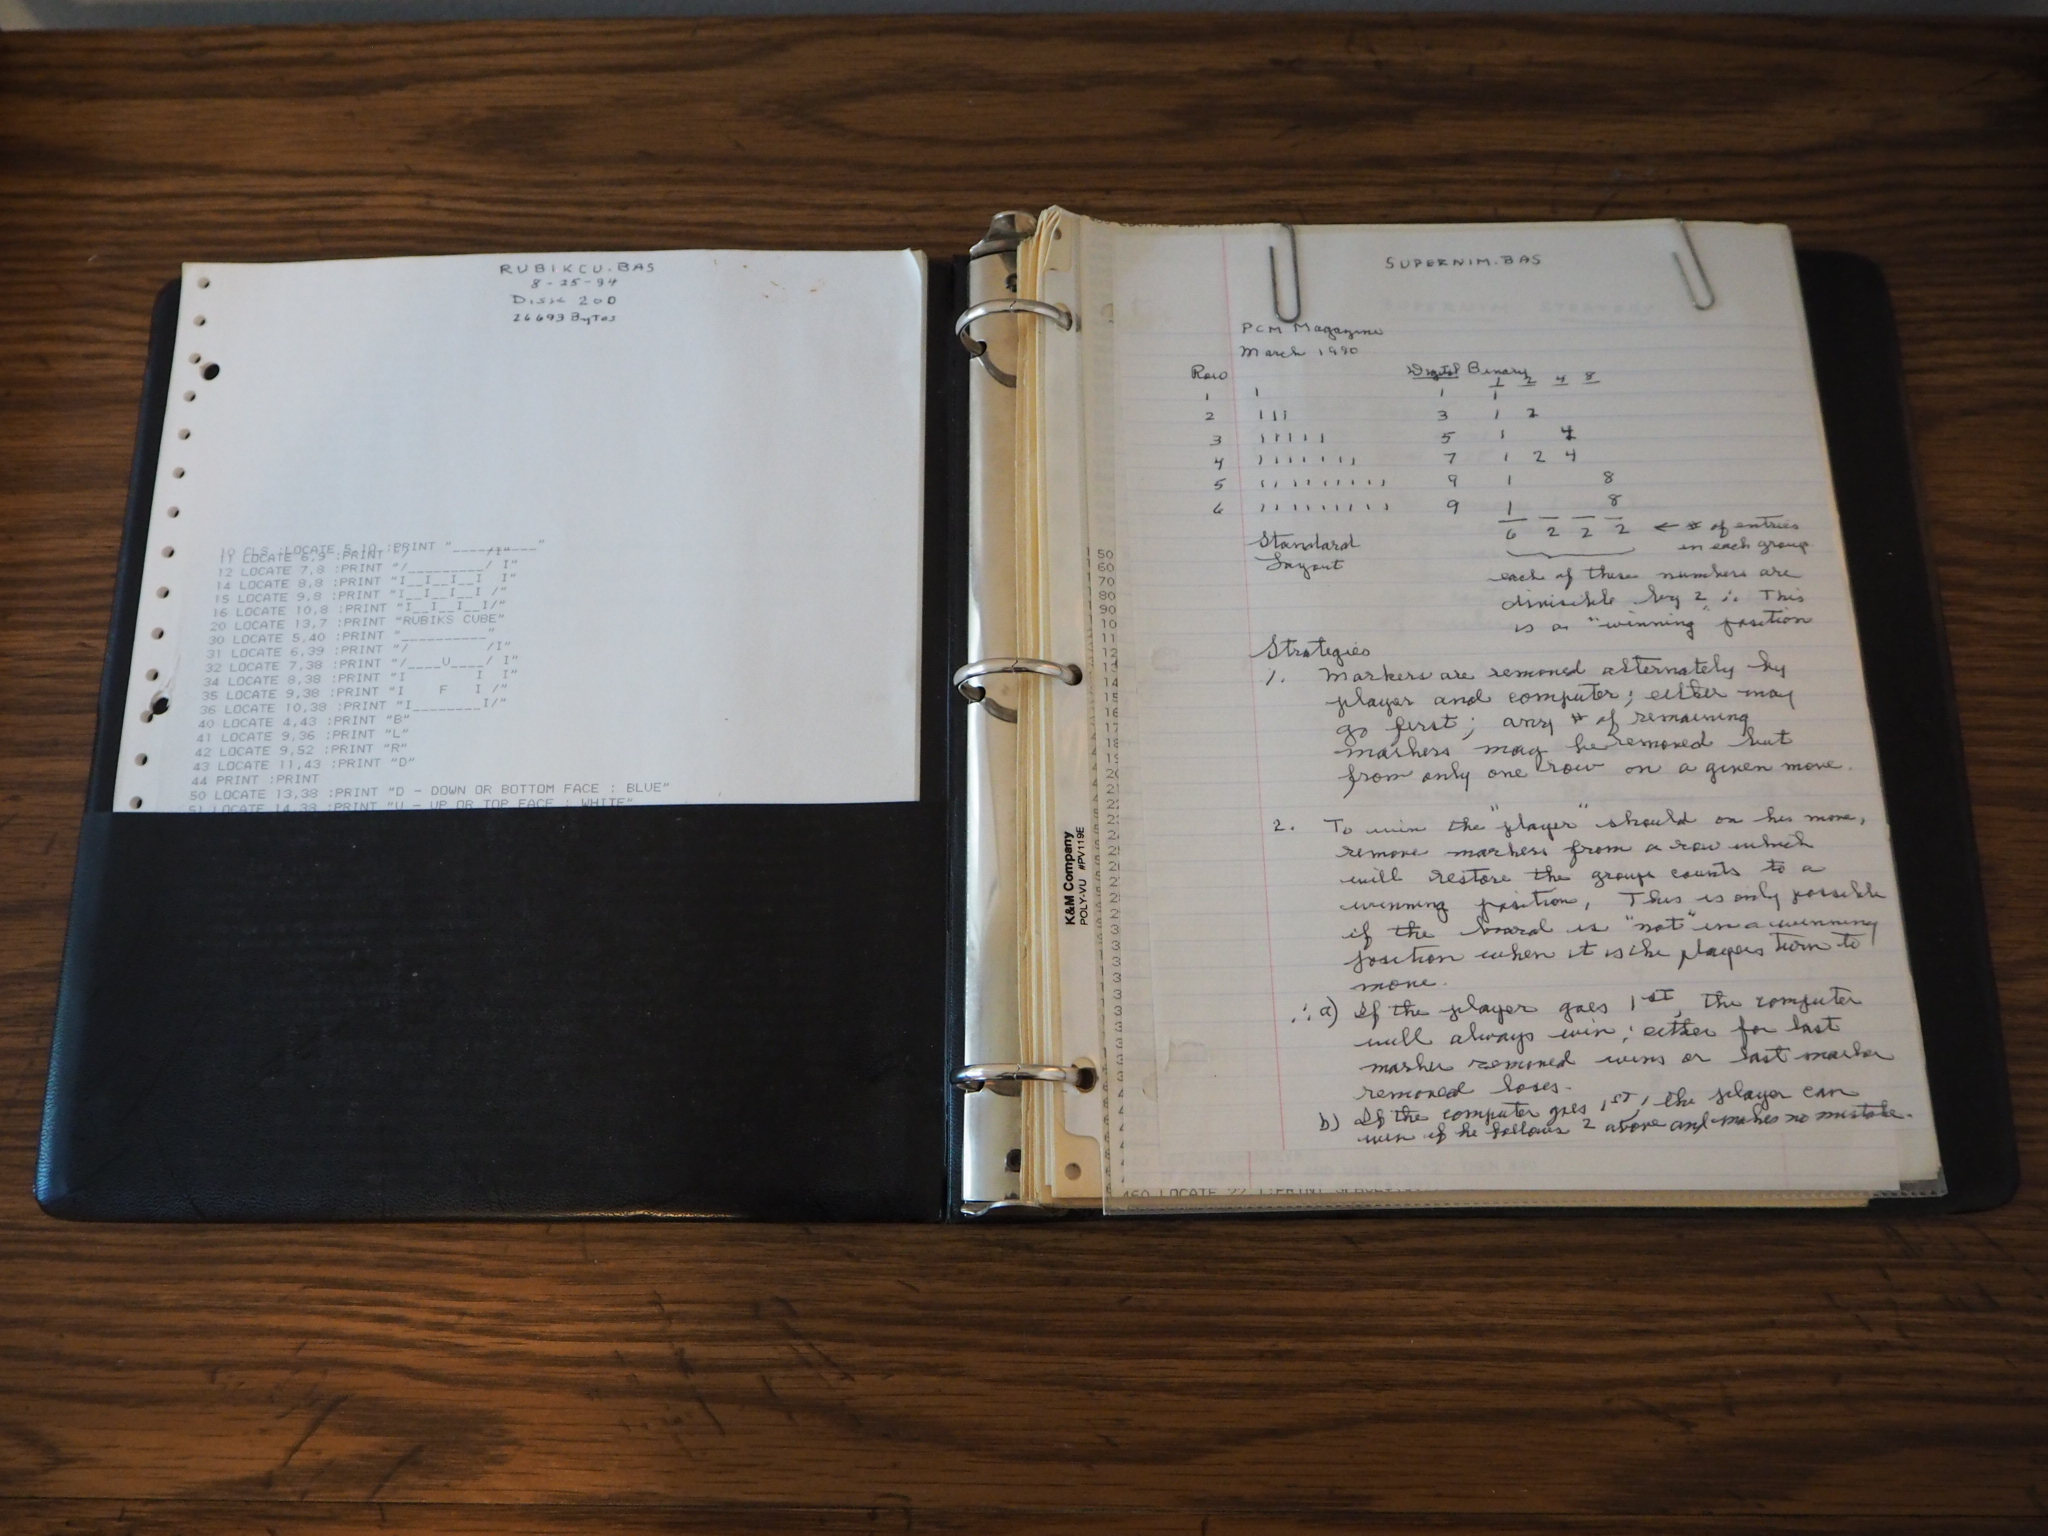 RUBIKCU.BAS
8-25-94
Disk 20D
26693 Bytes
10 CLS :LOCATE 5,10 :PRINT "_________"
11 LOCATE 6,9 :PRINT "/ /I"
12 LOCATE 7,8 :PRINT "/_________/ I"
14 LOCATE 8,8 :PRINT "I__I__I__I I"
15 LOCATE 9,8 :PRINT "I__I__I__I /"
16 LOCATE 10,8 :PRINT "I__I__I__I/"
20 LOCATE 13,7 :PRINT "RUBIKS CUBE"
30 LOCATE 5,40 :PRINT "__________"
31 LOCATE 6,39 :PRINT "/ /I"
32 LOCATE 7,38 :PRINT "/____U____/ I"
34 LOCATE 8,38 :PRINT "I I I"
35 LOCATE 9,38 :PRINT "I F I /"
36 LOCATE 10,38 :PRINT "I________I/"
40 LOCATE 4,43 :PRINT "B"
41 LOCATE 9,36 :PRINT "L"
42 LOCATE 9,52 :PRINT "R"
43 LOCATE 11,43 :PRINT "D"
44 PRINT :PRINT
50 LOCATE 13,38 :PRINT "D - DOWN OR BOTTOM FACE : BLUE"
51 LOCATE 14,38 :PRINT "U - UP OR TOP FACE : WHITE"
K&M Company
POLY-VU #PV119E
SUPERNIM.BAS
PCM Magazine
March 1990
Row Digital Binary 1 2 4 8
1 1 1 1
2 111 3 1 2
3 11111 5 1 4
4 1111111 7 1 2 4
5 111111111 9 1 8
6 111111111 9 1 8
6 2 2 2 ← # of entries
in each group
Standard
Layout
each of these numbers are
divisible by 2 ∴ This
is a "winning" position
Strategies
1. Markers are removed alternately by
player and computer; either may
go first; any # of remaining
markers may be removed but
from only one row on a given move.
2. To win the "player" should on his move,
remove markers from a row which
will restore the group counts to a
winning position. This is only possible
if the board is "not" in a winning
position when it is the players turn to
move.
∴ a) If the player goes 1ST, the computer
will always win; either for last
marker removed wins or last marker
removed loses.
b) If the computer goes 1ST, the player can
win if he follows 2 above and makes no mistake.